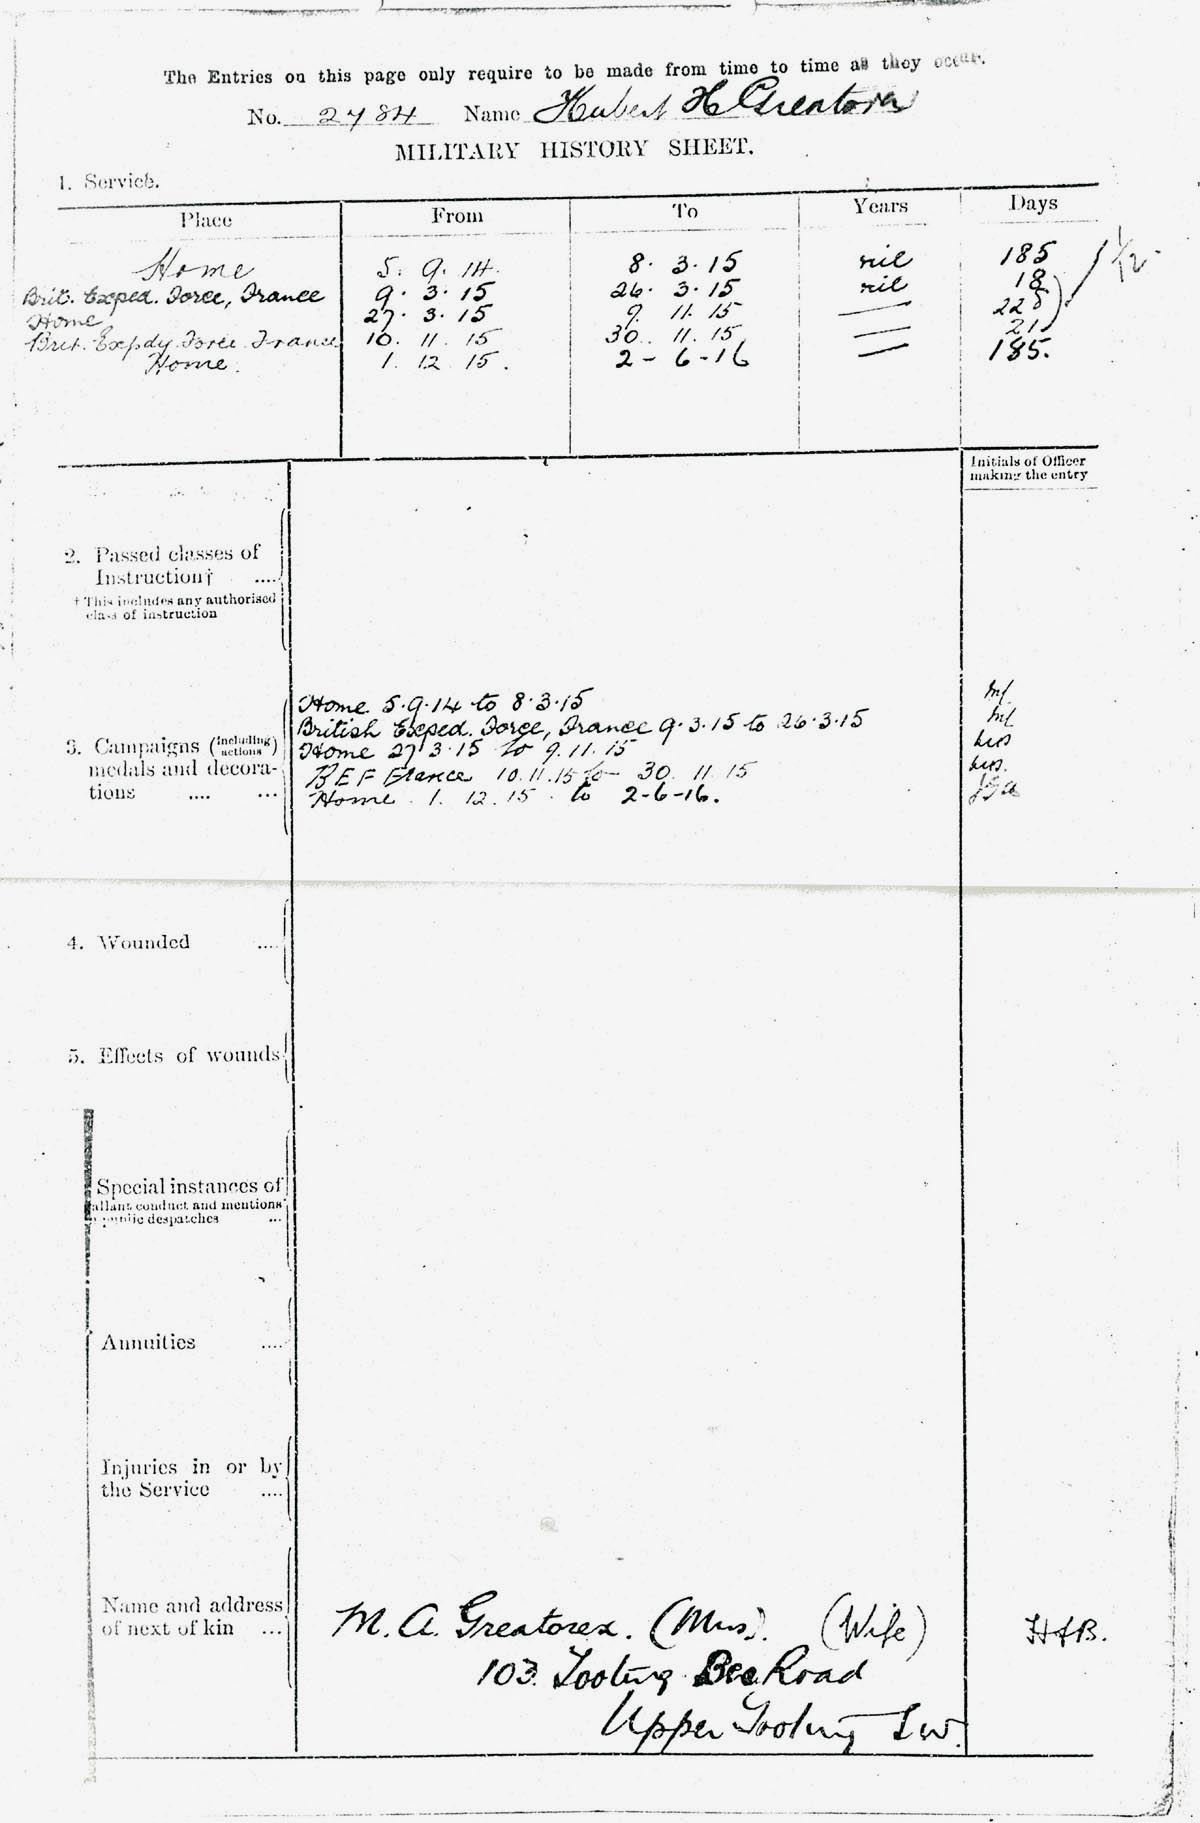 The Entries on this page only require to be made from time to time as they occur.
No. 2784 Name Hubert H Greatorex
MILITARY HISTORY SHEET.
1. Service.
Place From To Years Days
Home 5. 9. 14. 8. 3. 15 nil 185
Brit. Exped. Force, France 9. 3. 15 26. 3. 15 nil 18
Home 27. 3. 15 9. 11. 15 — 228
Brit. Expdy. Force France 10. 11. 15 30. 11. 15 — 21
Home. 1. 12. 15. 2-6-16 — 185.
Initials of Officer
making the entry
2. Passed classes of
Instruction† ....
† This includes any authorised
class of instruction
3. Campaigns (including
actions)
medals and decora-
tions .... ...
Home 5.9.14 to 8.3.15
British Exped. Force, France 9.3.15 to 26.3.15
Home 27 3.15 to 9.11.15
BEF France 10.11.15 to 30. 11. 15
Home. 1. 12. 15. to 2-6-16.
4. Wounded ....
5. Effects of wounds
Special instances of
allant conduct and mentions
public despatches ...
Annuities ....
Injuries in or by
the Service ....
Name and address
of next of kin ...
M. A. Greatorex. (Mrs). (Wife)
103. Tooting Bec Road
Upper Tooting S.W.